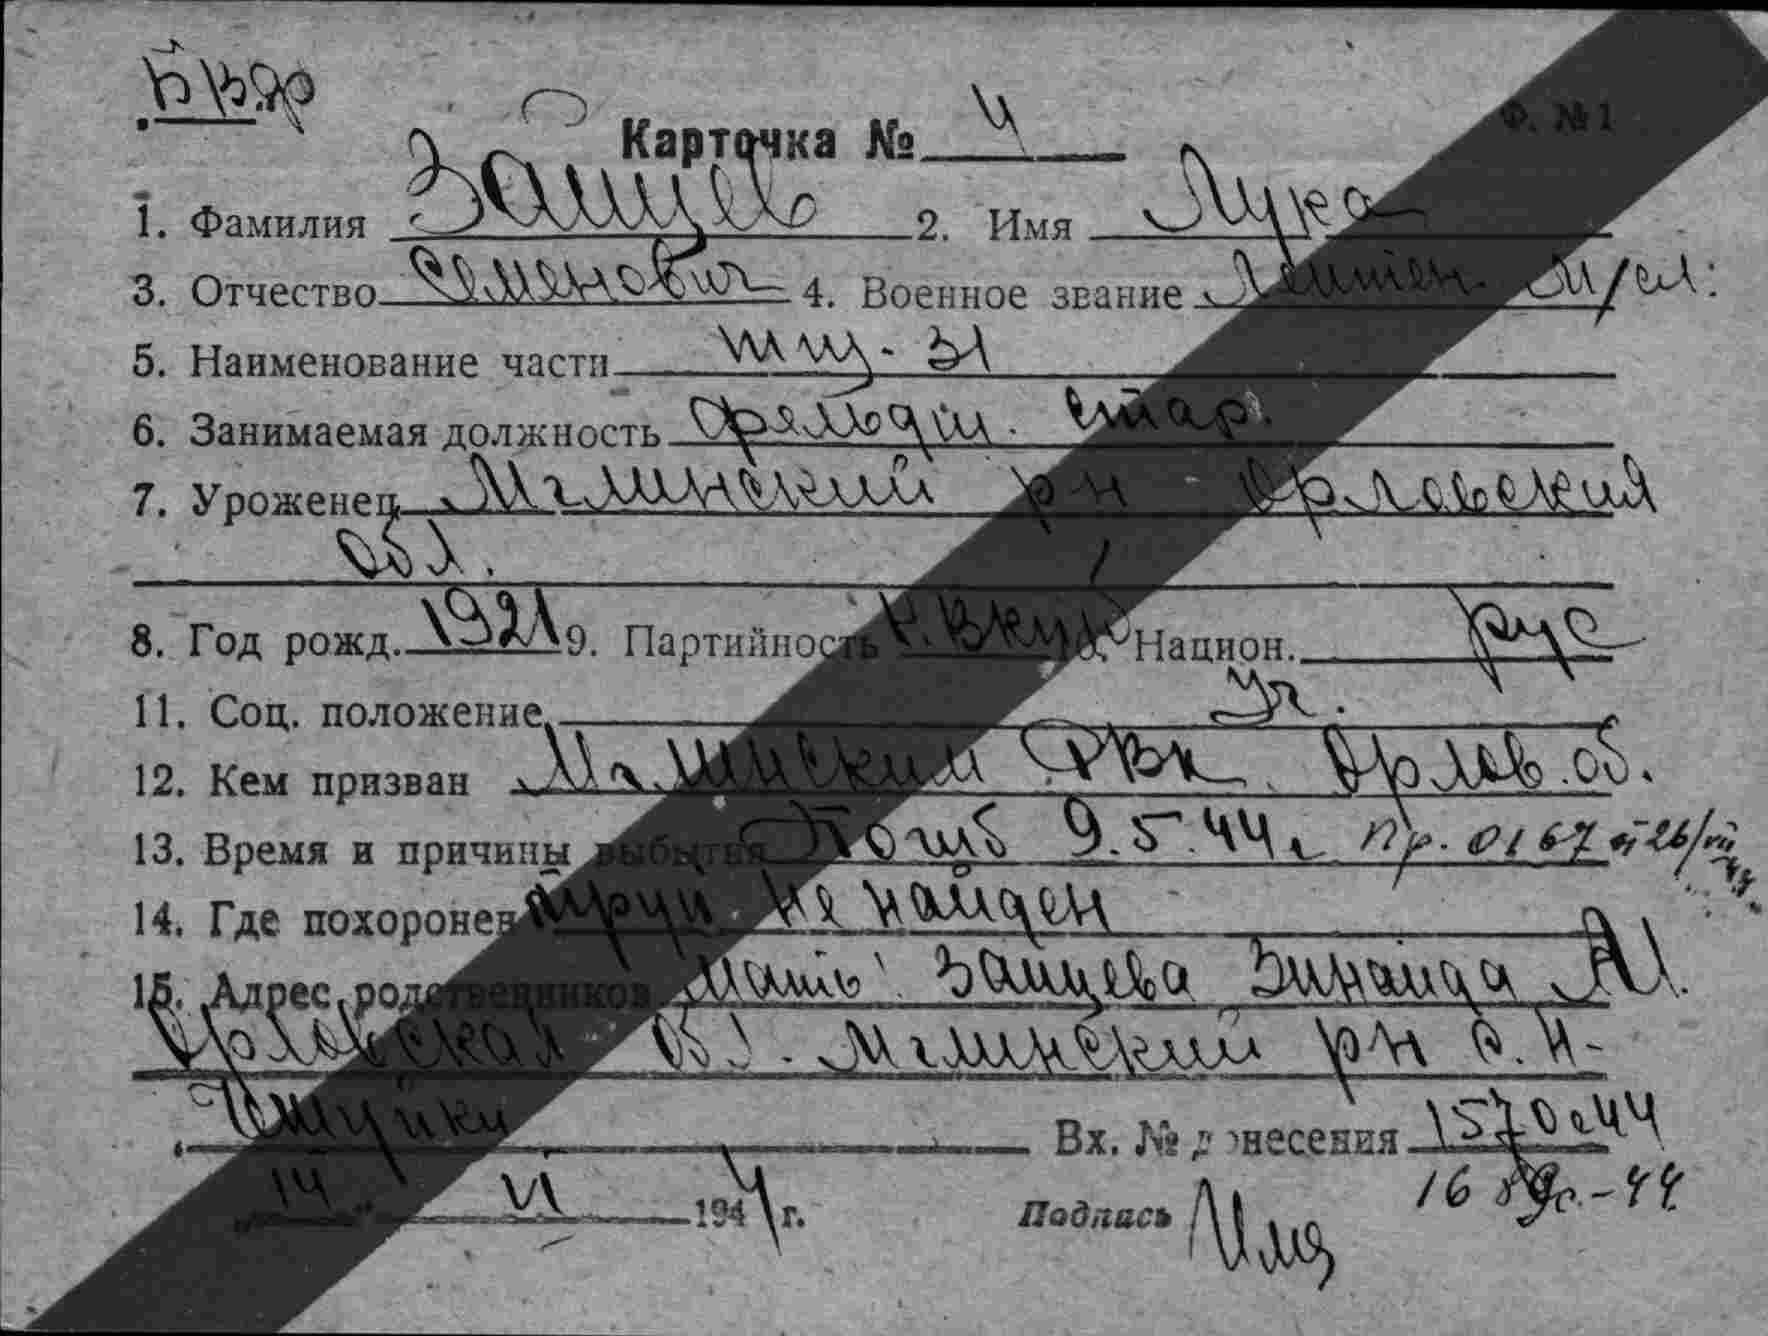 Карточка № 4
Ф. №1
1. Фамилия Зайцев 2. Имя Лука
3. Отчество Семенович 4. Военное звание Лейтен. м/сл:
5. Наименование части тщ-31
6. Занимаемая должность Фельдш. стар.
7. Уроженец Мглинский р-н Орловский
обл.
8. Год рожд. 1921 9. Партийность 10. Национ. рус
11. Соц. положение уч.
12. Кем призван Мглинский РВК Орлов. об.
13. Время и причины выбытия Погиб 9.5.44г Пр. 0167
14. Где похоронен Труп не найден
15. Адрес родственников Мать: Зайцева Зинаида М.
Орловская обл. Мглинский рн с. Н-
Чешуйки
Вх. № донесения 1570с44
16 -44
"14" VI 1944г. Подпись